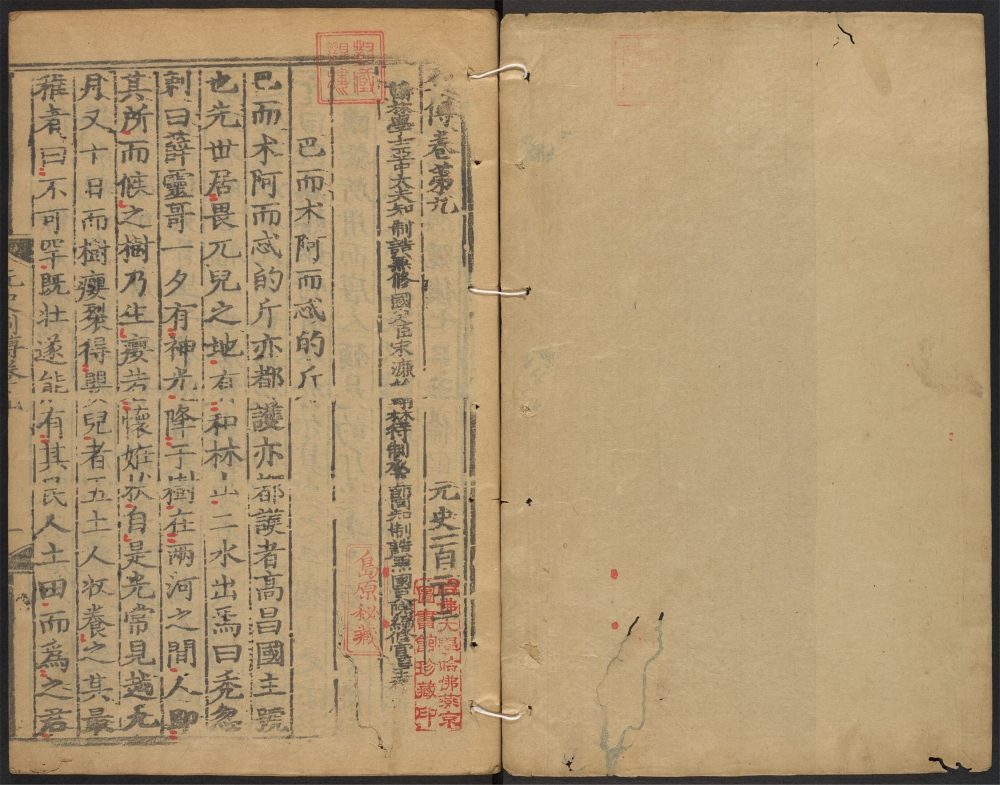 傳卷第九 元史一百二十二
翰林學士亞中大夫知制誥兼修國史臣宋濂 翰林待制承 郎同知制誥兼國史院編修官臣王禕
巴而术阿而忒的斤
巴而术阿而忒的斤亦都護亦都護者高昌國主號
也先世居畏兀兒之地有和林山二水出焉曰禿忽
剌曰薛靈哥一夕有神光降于樹在兩河之間人即
其所而候之樹乃生癭若懷妊狀自是光常見越九
月又十日而樹癭裂得嬰兒者五土人收養之其最
稚者曰不可罕既壯遂能有其民人土田而爲之君
島原秘藏
哈佛大學哈佛燕京
圖書館珍藏印